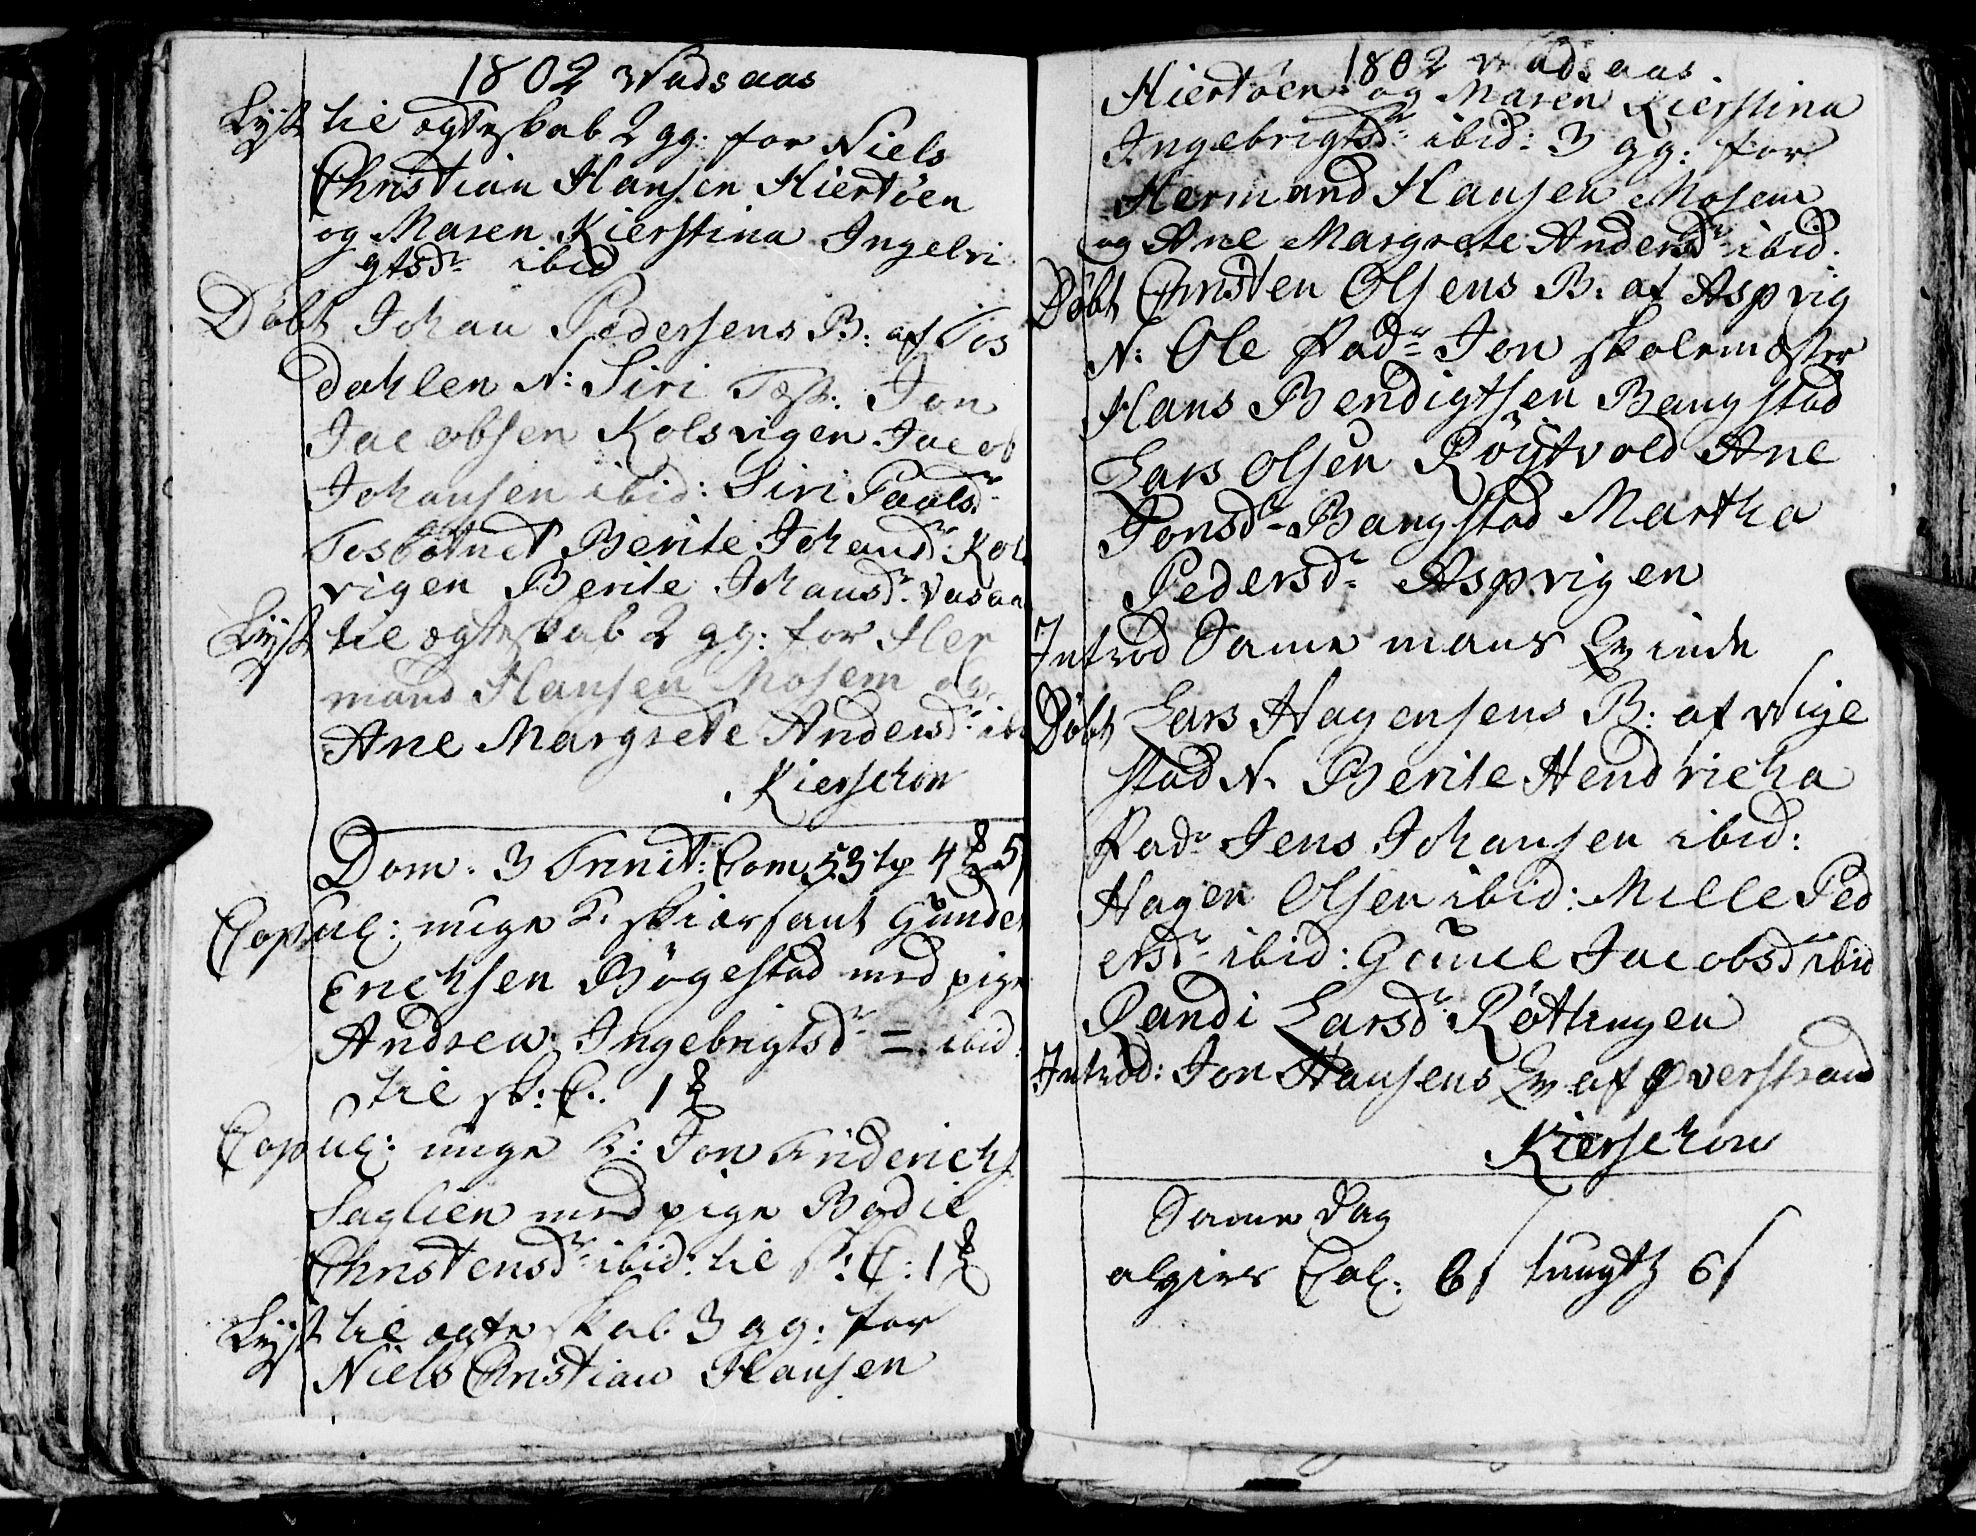 1802 Wadsaas
Lyst til ægteskab 2 gg: for Niels
Christian Hansen Hiertøen
og Maren Kierstina Ingebri
gtsdr ibid
Døbt Johan Pedersens B: af Tos
dahlen N: Siri Test: Jon
Jacobsen Kolsvigen Jacob
Johansen ibid: Siri Paalsdr
Tosbotnet Berite Johansdr: Kols
vigen Berite Johansdr Vasaa
Lyst til ægteskab 2 gg: for Her
mand Hansen Mosem og
Ane Margrete Andersdr ibi
Kierschow
Dom. 3 Trinit: Com 53 tp 4
Copul: unge K: skiærsant Gunder
Erichsen Bøgestad med pige
Andrea Ingebrigtsdr = ibid:
til sk: C: 1
Copul: unge K: Jon Friderichs
Saglien med pige Bodil
Christensdr ibid: til sk: C: 1
Lyst til ægteskab 3 gg: for
Niels Christian Hansen
1802 Wadsaas
Hiertøen og Maren Kierstina
Ingebrigtsdr ibid: 3 gg: for
Hermand Hansen Mosem
og Ane Margrete Andersdr ibid.
Døbt Christen Olsens B. af Aspvig
N: Ole Fadr Jon skolemæster
Hans Bendigtsen Bangstad
Lars Olsen Røytvold Ane
Jonsdr Bangstad Martha
Pedersdr Aspvigen
Introd Same mans Qvinde
Døbt Lars Hagensens B: af Wige
stad N. Berite Hendricha
Fadr Jens Johansen ibid:
Hagen Olsen ibid: Mille Ped
ersdr ibid: Gunel Jacobsdr ibid
Randi Larsdr Røttingen
Introd: Jon Hansens Qv af Øverstrand
Kierschow
Same Dag
Cal: 6 6